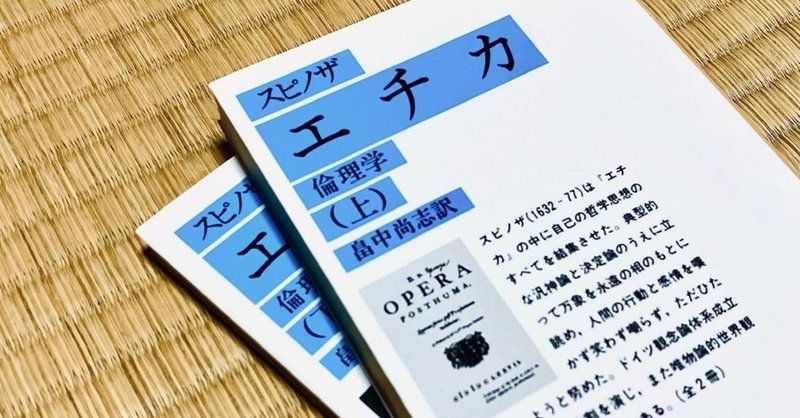 スピノザ
エチカ
倫理学
(上)
畠中尚志訳
スピノザ(1632-77)は『エチ
カ』の中に自己の哲学思想の
すべてを結集させた。典型的
な汎神論と決定論のうえに立
って万象を永遠の相のもとに
眺め、人間の行動と感情を嘆
かず笑わず嘲らず、ただひた
ようと努めた。ドイツ観念論体系成立
を演じ、また唯物論的世界観
ある。(全2冊)
OPERA
POSTHUMA,
スピノザ
エ
倫理
(下
畠